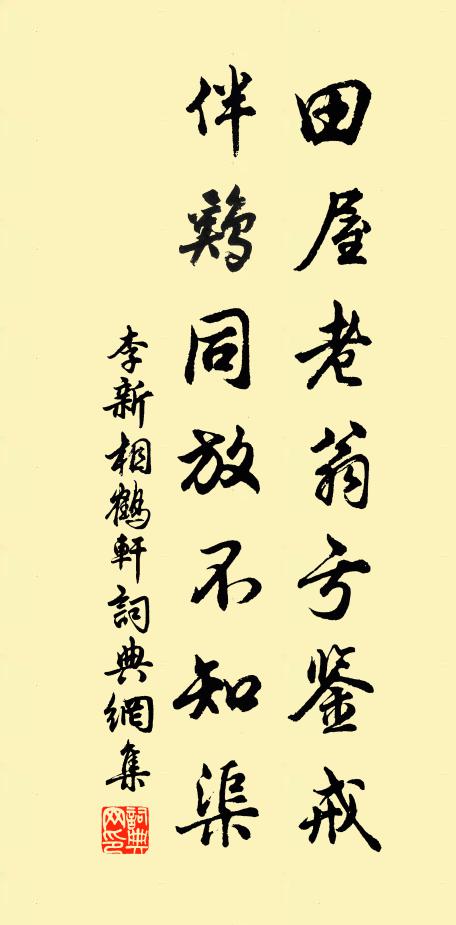 田屋老翁亏鉴戒
伴鸡同放不知渠
李新相鹤轩詞典網集
詞典网印